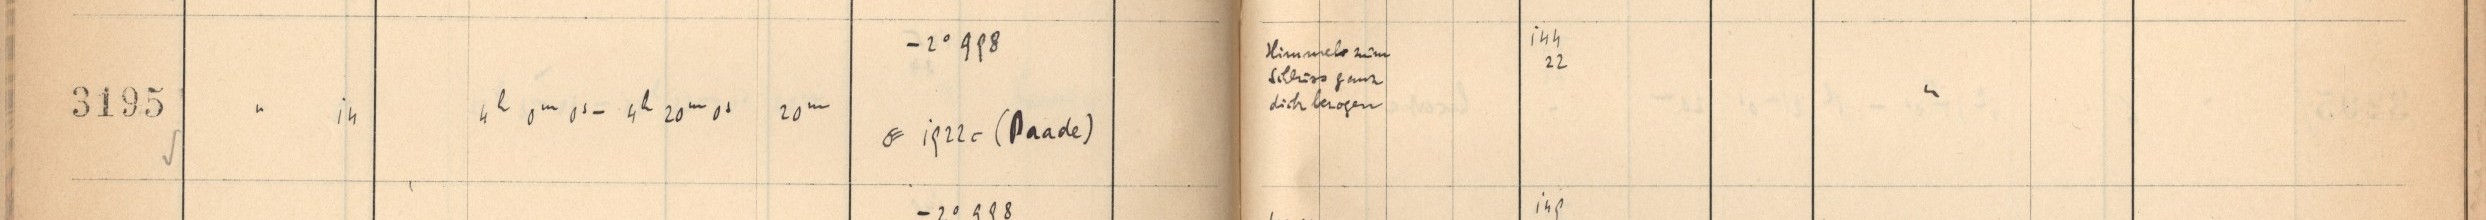 -2° 998
3195 " 14 4h 0m 0s - 4h 20m 0s 20m
1922c (Baade)
Himmel zum
Schluss ganz
dick bezogen
144
22
"
-2° 998
149